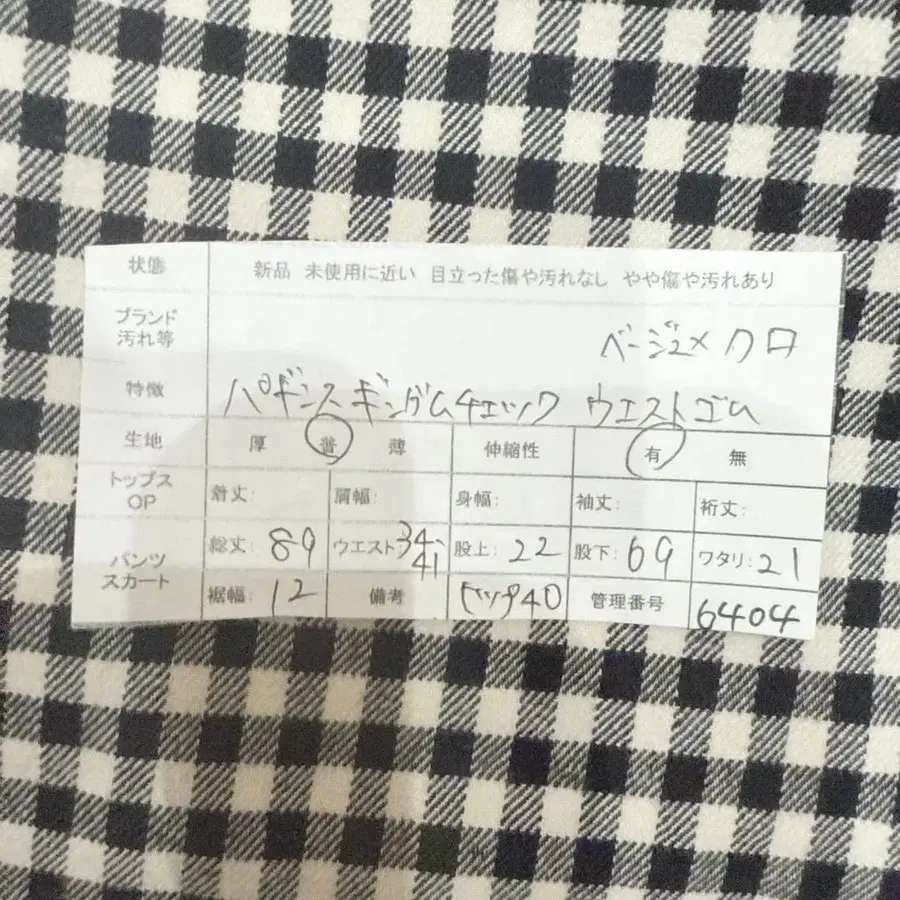 状態 新品 未使用に近い 目立った傷や汚れなし やや傷や汚れあり
ブランド
汚れ等 ベージュ×クロ
特徴 パギンス ギンガムチェック ウエストゴム
生地 厚 普 薄 伸縮性 有 無
トップス
OP 着丈: 肩幅: 身幅: 袖丈: 裄丈:
パンツ
スカート 総丈: 89 ウエスト: 34-41 股上: 22 股下: 69 ワタリ: 21
裾幅: 12 備考 ヒップ40 管理番号 6404